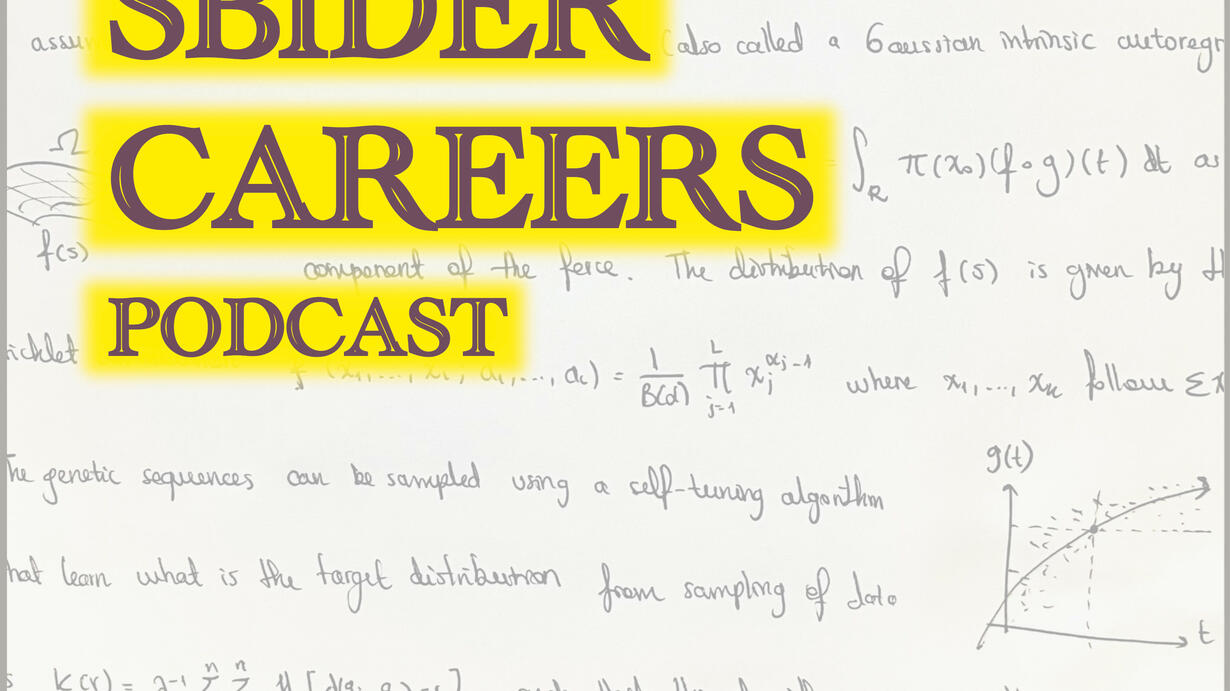 SBIDER
(also called a Gaussian intrinsic autoregr
Ω
CAREERS
∫_R π(x₀)(f∘g)(t) dt as
f(s)
component of the force. The distribution of f(s) is given by th
PODCAST
= 1/B(α) ∏_{j=1}^{L} x_j^{α_j-1} where x₁,..., x_K follow Σ
g(t)
The genetic sequences can be sampled using a self-tuning algorithm
hat learn what is the target distribution from sampling of data
t
K(r) = λ⁻¹